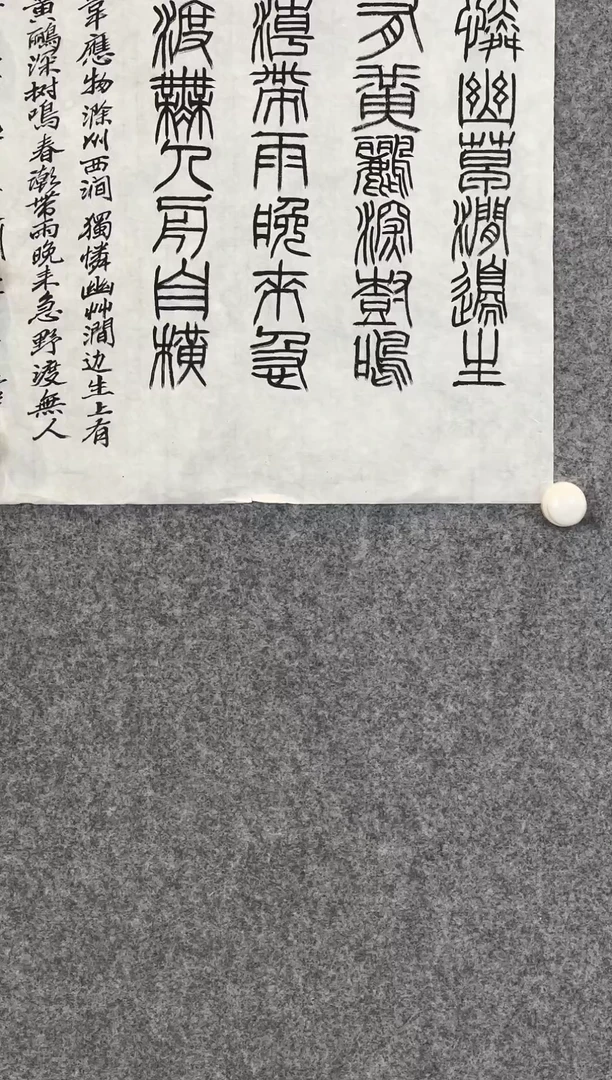 憐幽草澗邊生
有黃鸝深尌鳴
潮帶雨晚來急
渡無人舟自橫
韋應物滁州西澗 獨憐幽艸澗边生上有
黃鸝深树鳴春潮帶雨晚来急野渡無人